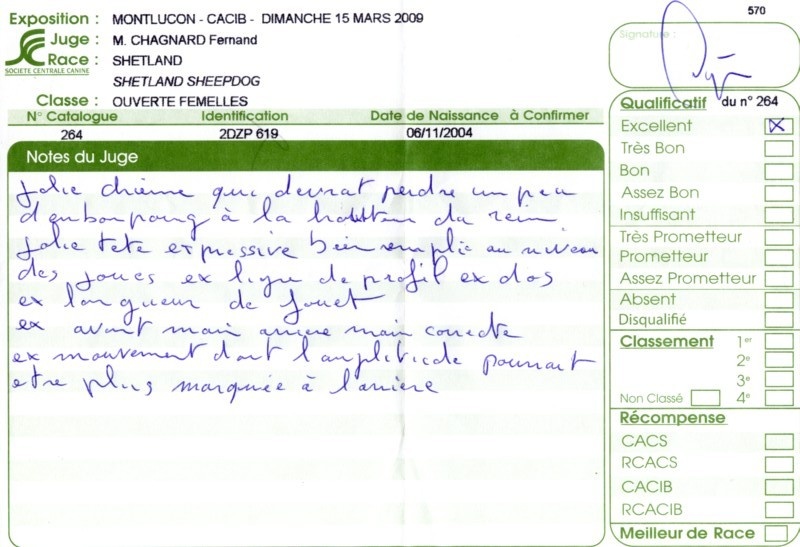 570
Exposition : MONTLUCON - CACIB - DIMANCHE 15 MARS 2009
Juge : M. CHAGNARD Fernand
Race : SHETLAND
SOCIETE CENTRALE CANINE
SHETLAND SHEEPDOG
Classe : OUVERTE FEMELLES
N° Catalogue Identification Date de Naissance à Confirmer
264 2DZP 619 06/11/2004
Notes du Juge
Jolie chienne qui devrat perdre un peu
d'enbonpoung à la hauteur du rein
Jolie tete expressive bien remplie au niveau
des joues ex ligne de profil ex dos
ex longueur de fouet
ex avant main arriere main correcte
ex mouvement dont l'amplitude pourrait
etre plus marquée à l'arrière
Signature :
Qualificatif du n° 264
Excellent X
Très Bon
Bon
Assez Bon
Insuffisant
Très Prometteur
Prometteur
Assez Prometteur
Absent
Disqualifié
Classement 1er
2e
3e
Non Classé 4e
Récompense
CACS
RCACS
CACIB
RCACIB
Meilleur de Race